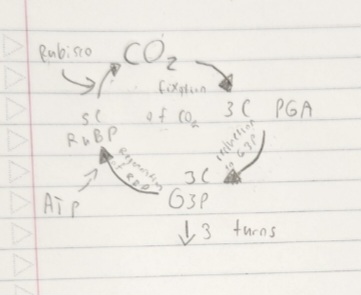 Rubisco
CO₂
fixation
of CO₂
3C PGA
5C
RuBP
reduction
to G3P
Regeneration
of RuBP
3C
G3P
ATP
3 turns